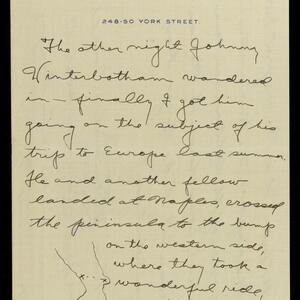 248-50 YORK STREET.
The other night Johnny
Winterbotham wandered
in — finally I got him
going on the subject of his
trip to Europe last summer.
He and another fellow
landed at Naples, crossed
the pininsula to the bump
on the western side,
where they took a
wonderful ride,